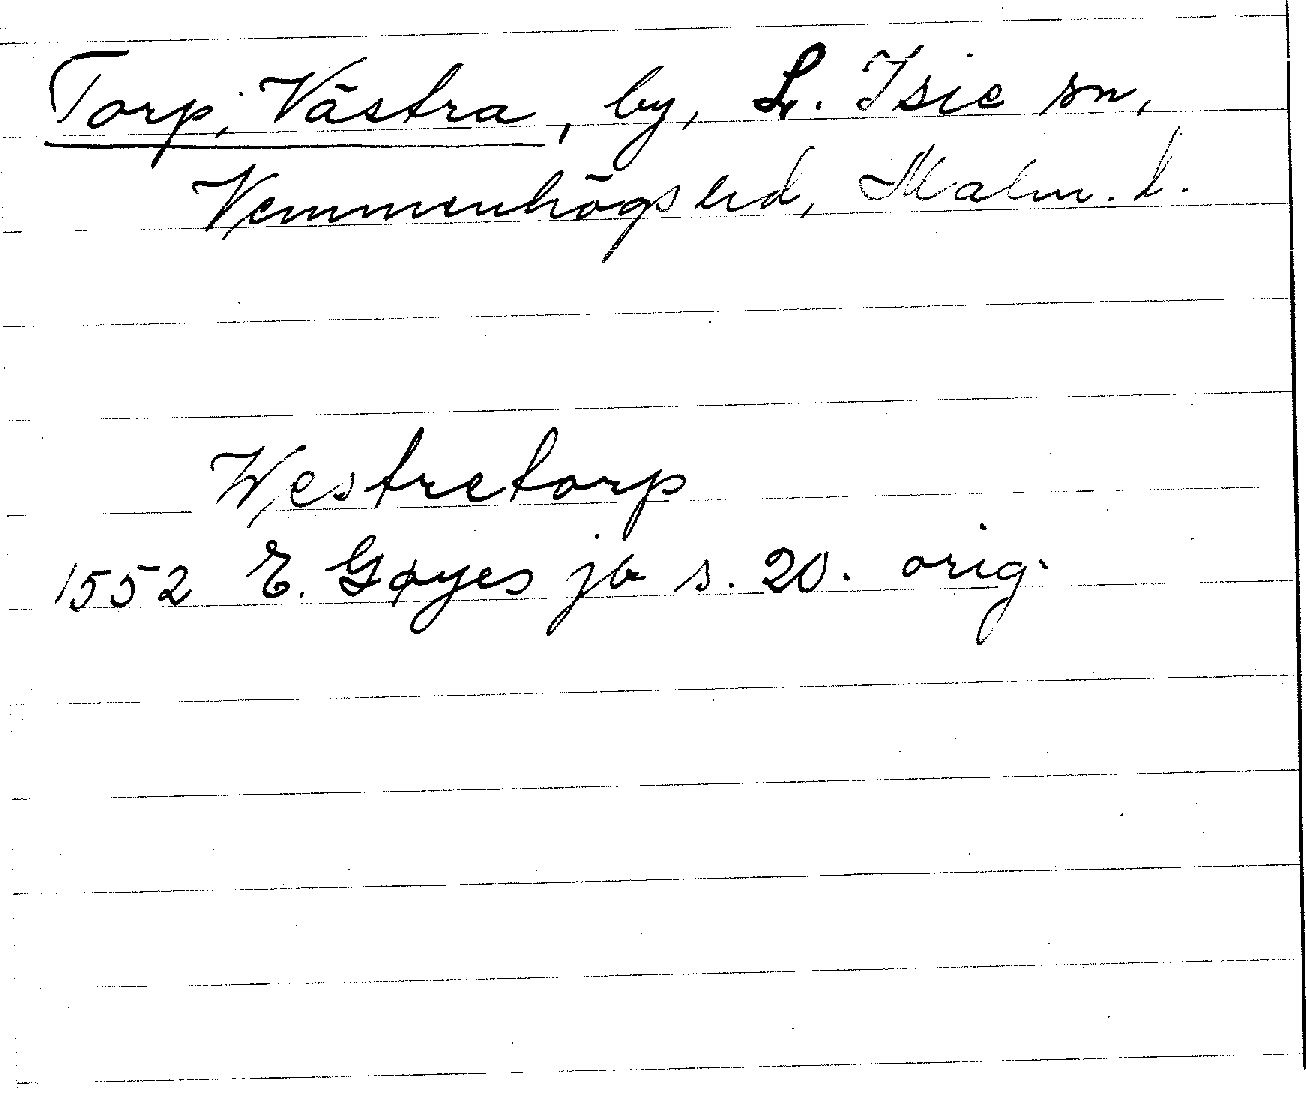 Torp, Västra, by, L. Isie sn,
Vemmenhögs hd, Malm. l.
Westretorp
1552 E. Gøyes jb s. 20. orig.